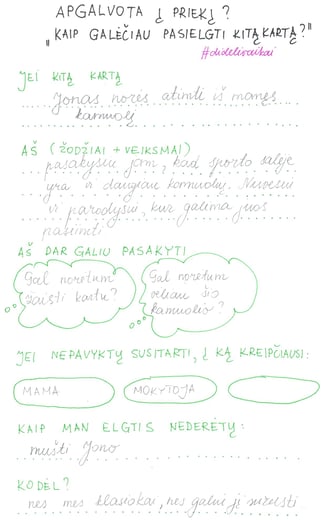 APGALVOTA Į PRIEKĮ?
"KAIP GALĖČIAU PASIELGTI KITĄ KARTĄ?"
#dideliivaikai
JEI KITĄ KARTĄ
Jonas norės atimti iš manęs
kamuolį
AŠ (ŽODŽIAI + VEIKSMAI)
pasakysiu jam, kad sporto salėje
yra ir daugiau kamuolių. Nuvesiu
ir parodysiu, kur galima juos
pasiimti
AŠ DAR GALIU PASAKYTI
Gal norėtum
žaisti kartu?
Gal norėtum
vėliau šio
kamuolio?
JEI NEPAVYKTŲ SUSITARTI, Į KĄ KREIPČIAUSI:
MAMA
MOKYTOJA
KAIP MAN ELGTIS NEDERĖTŲ:
mušti Jono
KODĖL?
nes mes klasiokai, nes galiu jį sužeisti